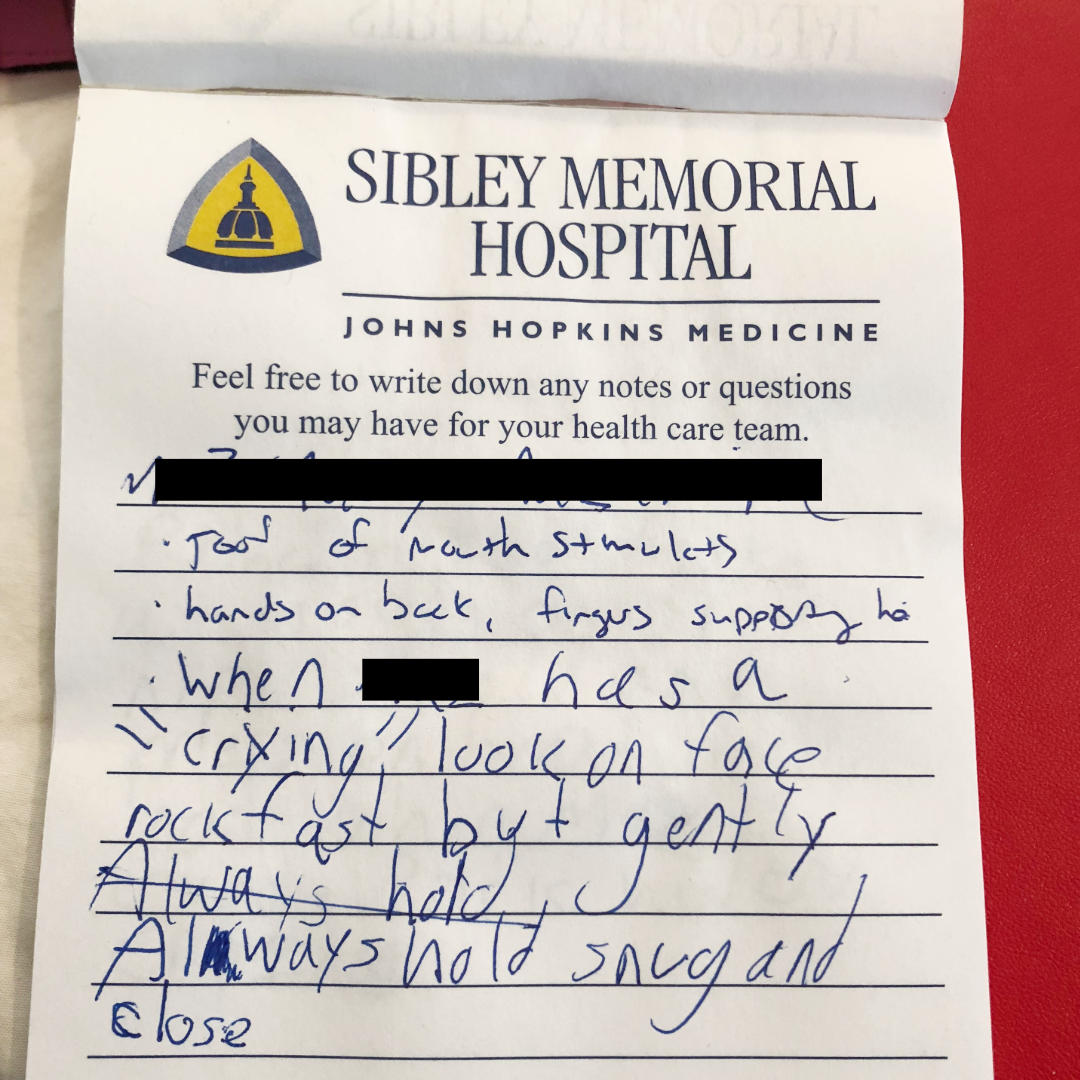 SIBLEY MEMORIAL
HOSPITAL
JOHNS HOPKINS MEDICINE
Feel free to write down any notes or questions
you may have for your health care team.
· roof of mouth stimulats
· hands on back, fingers supporting
· when has a
"crying" look on face
rock fast but gently
Always hold
Always hold snug and
close